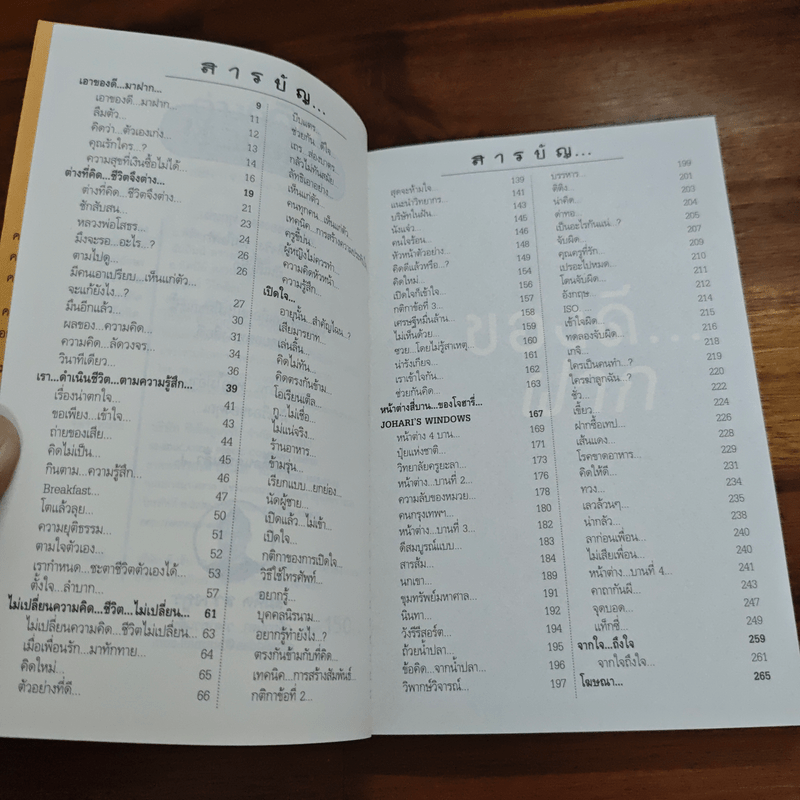 สารบัญ...
เอาของดี...มาฝาก... 9
เอาของดี...มาฝาก... 11
ลืมตัว... 12
คิดว่า...ตัวเองเก่ง... 13
คุณรักใคร...? 14
ความสุขที่เงินซื้อไม่ได้... 16
ต่างที่คิด...ชีวิตจึงต่าง... 19
ต่างที่คิด...ชีวิตจึงต่าง... 21
ชักสับสน... 23
หลวงพ่อโสธร... 24
มึงจะรอ...อะไร...? 24
ตามไปดู... 26
มีคนเอาเปรียบ...เห็นแก่ตัว... 26
จะแก้ยังไง...? 27
มืนอีกแล้ว... 30
ผลของ...ความคิด... 31
ความคิด...ลัดวงจร... 34
วินาทีเดียว... 36
เรา...ดำเนินชีวิต...ตามความรู้สึก... 39
เรื่องน่าตกใจ... 41
ขอเพียง...เข้าใจ... 43
ถ่ายของเสีย... 44
คิดไม่เป็น... 45
กินตาม...ความรู้สึก... 46
Breakfast... 47
โตแล้วลุย... 50
ความยุติธรรม... 51
ตามใจตัวเอง... 52
เรากำหนด...ชะตาชีวิตตัวเองได้... 53
ตั้งใจ...ลำบาก... 57
ไม่เปลี่ยนความคิด...ชีวิต...ไม่เปลี่ยน... 61
ไม่เปลี่ยนความคิด...ชีวิตไม่เปลี่ยน... 63
เมื่อเพื่อนรัก...มาทักทาย... 64
คิดใหม่... 65
ตัวอย่างที่ดี... 66
บีบแตร...
ช่วยกัน...ดีใจ...
กลัวไม่ทันสมัย...
ลัทธิเอาอย่าง...
เห็นแก่ตัว...
คนทุกคน...เห็นแก่ตัว...
ครูขี้บ่น...
ผู้หญิงไม่ควรทำ...
ความคิดหัวหน้า...
ความรู้สึก...
เปิดใจ...
อายุนั้น...สำคัญไฉน...?
เสียมารยาท...
เล่นลิ้น...
คิดไม่ทัน...
คิดตรงกันข้าม...
โอเรียนเต็ล...
กู...ไม่เชื่อ...
ไม่แน่จริง...
ร้านอาหาร...
ข้ามรุ่น...
เรียกแบบ...ยกย่อง...
นัดผู้ชาย...
เปิดแล้ว...ไม่เข้า...
เปิดใจ...
กติกาของการเปิดใจ...
วิธีใช้โทรศัพท์...
อยากรู้...
บุคคลนิรนาม...
อยากรู้ทำยังไง...?
ตรงกันข้ามกับที่คิด...
เทคนิค...การสร้างสัมพันธ์...
กติกาข้อที่ 2...
สารบัญ...
สุดจะห้ามใจ... 139
แนะนำวิทยากร... 141
บริษัทในฝัน... 143
นังแจ๋ว... 145
คนใจร้อน... 146
หัวหน้าตัวอย่าง... 148
คิดดีแล้วหรือ...? 149
คิดใหม่... 154
เปิดใจก็เข้าใจ... 156
กติกาข้อที่ 3... 157
เศรษฐีหมื่นล้าน... 158
ไม่เห็นด้วย... 159
ซวย...โดยไม่รู้สาเหตุ... 161
น่ารังเกียจ... 162
เราเข้าใจกัน... 162
ช่วยกันคิด... 163
หน้าต่างสี่บาน...ของโจฮารี่...
JOHARI'S WINDOWS 167
หน้าต่าง 4 บาน... 169
ปุ๋ยแห่งชาติ... 171
วิทยาลัยครูยะลา... 173
หน้าต่าง...บานที่ 2... 176
ความลับของหมวย... 178
คนกรุงเทพฯ... 180
หน้าต่าง...บานที่ 3... 182
ดีสมบูรณ์แบบ... 183
สารส้ม... 184
นกเขา... 189
ชุมทรัพย์มหาศาล... 191
นินทา... 192
วังรีรีสอร์ต... 194
ถ้วยน้ำปลา... 195
ข้อคิด...จากน้ำปลา... 196
วิพากษ์วิจารณ์... 197
บรรหาร... 199
ตีติง... 201
น่าคิด... 203
ด่าทอ... 204
เป็นอะไรกันแน่...? 205
จับผิด... 207
คุณครูที่รัก... 209
เปรอะไปหมด... 210
โดนจับผิด... 211
อังกฤษ... 212
ISO... 214
เข้าใจผิด... 215
ทดลองจับผิด... 216
เกจิ... 218
ใครเป็นคนทำ...? 219
ใครฆ่าลูกฉัน...? 221
ชั่ว... 222
เขี้ยว... 224
ฝากซื้อเทป... 226
เส้นแดง... 228
โรคขาดอาหาร... 229
คิดให้ดี... 231
ทวง... 234
เลวล้วนๆ... 235
น่ากลัว... 238
ลาก่อนเพื่อน... 240
ไม่เสียเพื่อน... 240
หน้าต่าง...บานที่ 4... 241
คาถากันผี... 243
จุดบอด... 247
แท็กซี่... 249
จากใจ...ถึงใจ 259
จากใจถึงใจ... 261
โฆษณา... 265